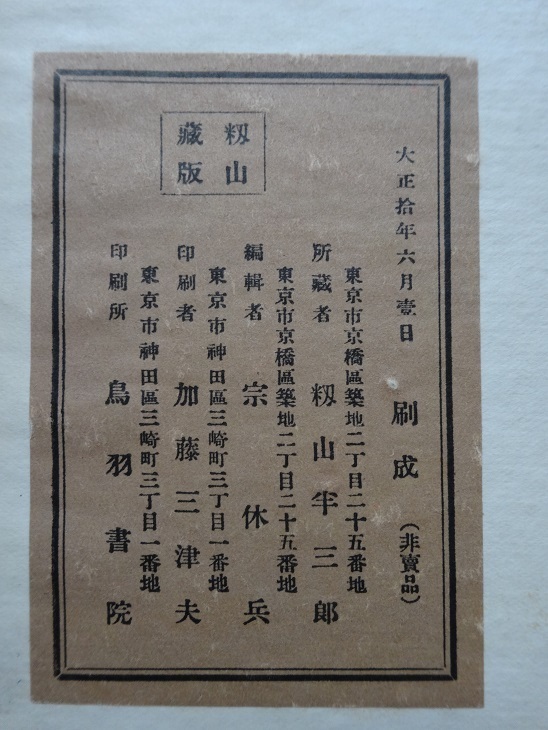 大正拾年六月壹日 刷成 (非賣品)
東京市京橋區築地二丁目二十五番地
所藏者 籾山半三郎
東京市京橋區築地二丁目二十五番地
編輯者 宗休兵
東京市神田區三崎町三丁目一番地
印刷者 加藤三津夫
東京市神田區三崎町三丁目一番地
印刷所 鳥羽書院
籾山
藏版